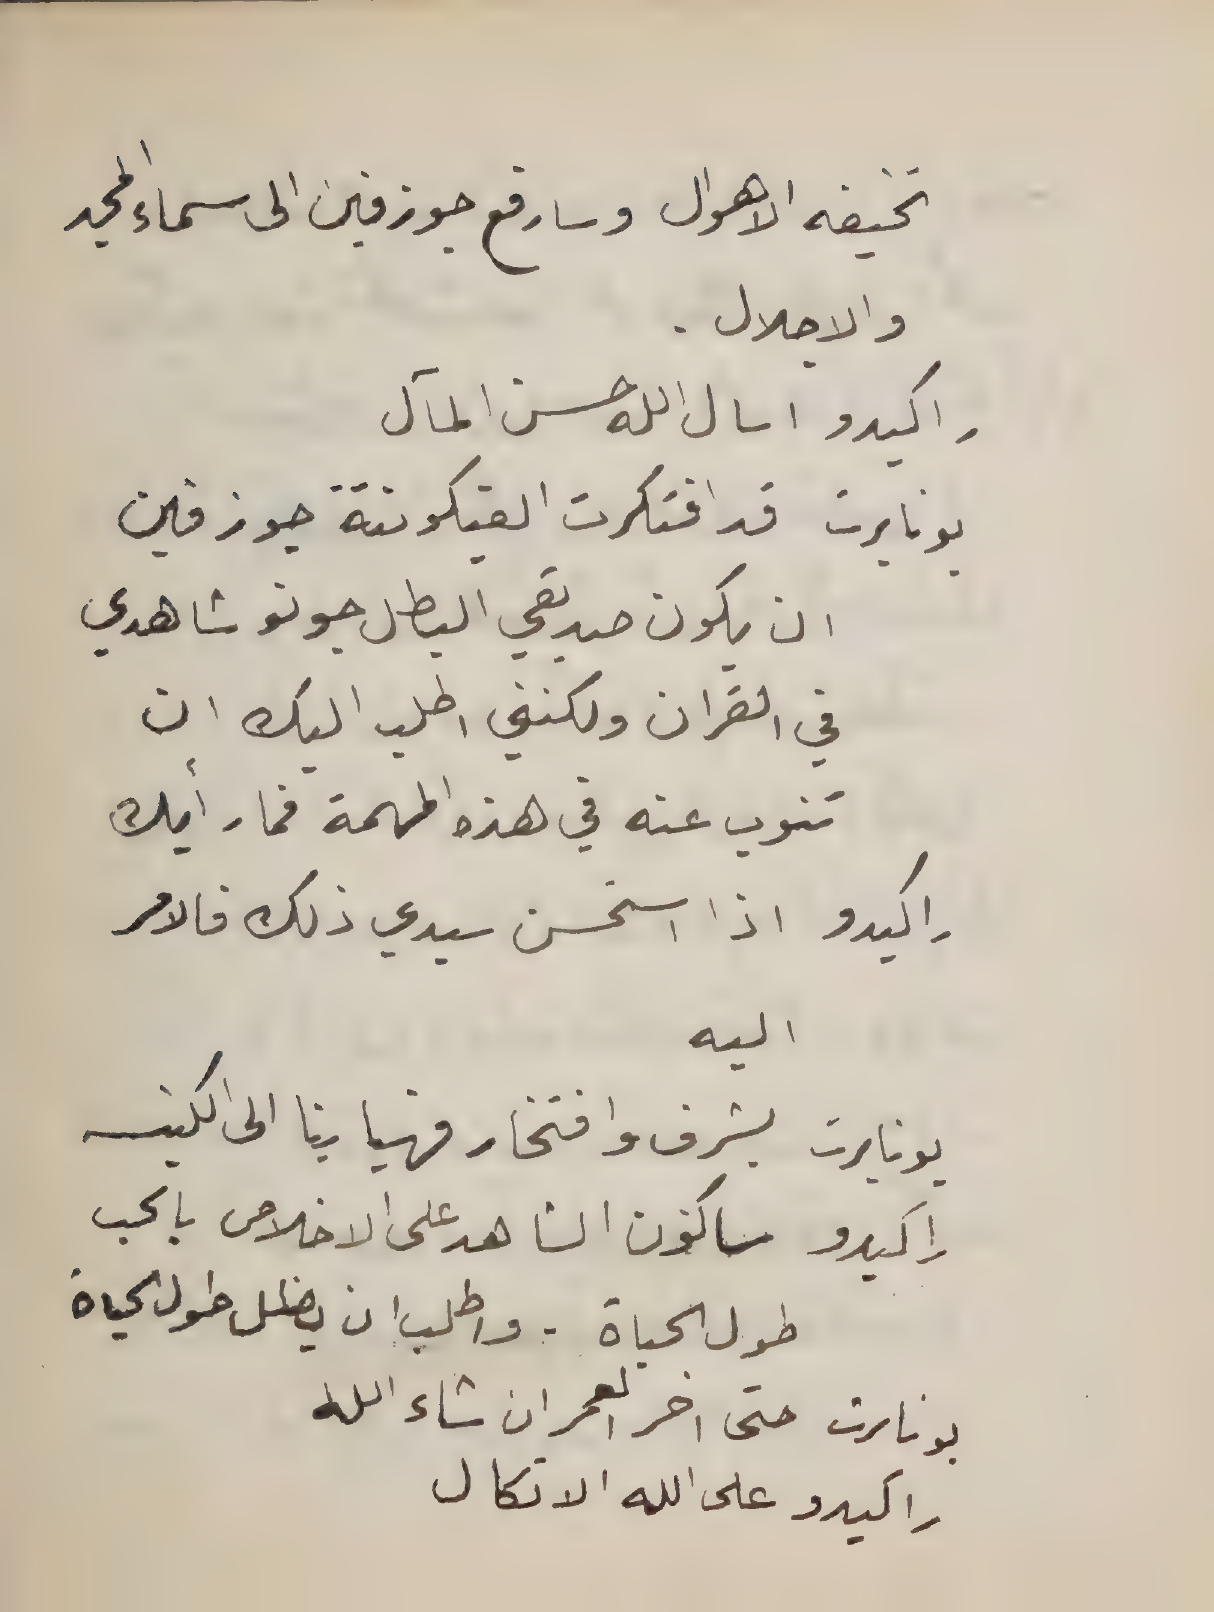 تخيفه الاهوال وسارفع جوزفين الى سماء المجد
والاجلال .
راكيدو اسال الله حسن المآل
بونابرت قد افتكرت الفيكونتة جوزفين
ان يكون صديقي البطل جونو شاهدي
في القران ولكنني اطلب اليك ان
تنوب عنه في هذه المهمة فما رأيك
راكيدو اذا استحسن سيدي ذلك فالامر
اليه
بونابرت بشرف وافتخار فهيا بنا الى الكنيسه
راكيدو ساكون الشاهد على الاخلاص بالحب
طول الحياة . واطلب ان يظل طول الحياة
بونابرت حتى اخر العمر ان شاء الله
راكيدو على الله الاتكال